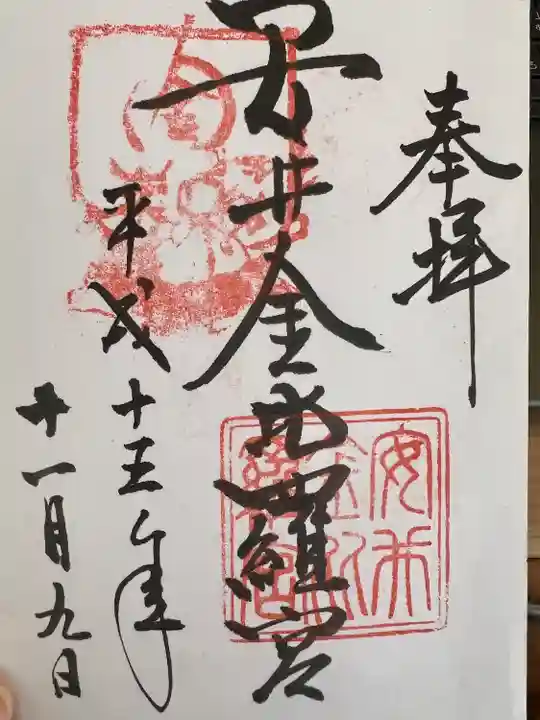 奉拝
安井金比羅宮
平成十五年
十一月九日